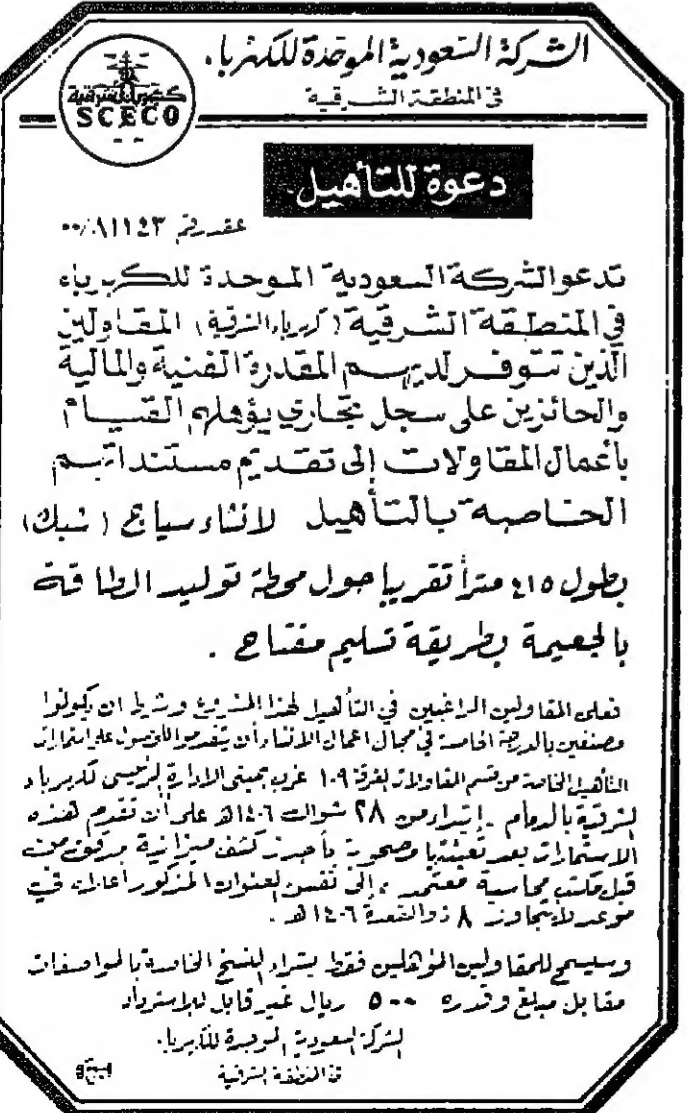 الشركة السعودية الموحدة للكهرباء
في المنطقة الشرقية
كهرباء الشرقية
SCECO
دعوة للتأهيل
عقد رقم ٠٠/٨١١٤٣
تدعو الشركة السعودية الموحدة للكهرباء
في المنطقة الشرقية (كهرباء الشرقية) المقاولين
الذين تتوفر لديهم المقدرة الفنية والمالية
والحائزين على سجل تجاري يؤهلهم القيام
بأعمال المقاولات إلى تقديم مستنداتهم
الخاصة بالتأهيل لانشاء سياج (شبك)
بطول ٤١٥ متراً تقريبا حول محطة توليد الطاقة
بالجعيمة بطريقة تسليم مفتاح .
فعلى المقاولين الراغبين في التأهيل لهذا المشروع وشريطة ان يكونوا
مصنفين بالدرجة الخامسة في مجال اعمال الانشاء أن يتقدموا للحصول على استمارات
التأهيل الخاصة من قسم المقاولات لغرفة ١٠٩ غرب بمبنى الادارة الرئيسي لكهرباء
الشرقية بالدمام . إبتداء من ٢٨ شوال ١٤٠٦هـ على أن تقدم هذه
الاستمارات بعد تعبئتها مصحوبة بأحدث كشف ميزانية مدقق من
قبل مكتب محاسبة معتمد ، إلى نفس العنوان المذكور أعلاه في
موعد لايتجاوز ٨ ذو القعدة ١٤٠٦هـ .
وسيسمح للمقاولين المؤهلين فقط بشراء النسخ الخاصة بالمواصفات
مقابل مبلغ وقدره ٥٠٠ ريال غير قابل للاسترداد
الشركة السعودية الموحدة للكهرباء
في المنطقة الشرقية